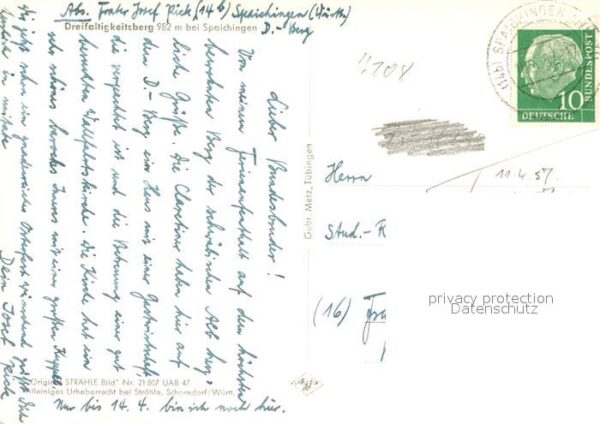 Abs. Frater Josef Rick (14 b) Spaichingen (Württ)
Dreifaltigkeitsberg 982 m bei Spaichingen
D.-Berg
Lieber Bundesbruder!
Von meinem Ferienaufenthalt auf dem höchsten
bewohnten Berg der schwäbischen Alb herz-
liche Grüße. Die Claretiner haben hier auf
dem D.-Berg ein Haus mit einer Gastwirtschaft
die verpachtet ist und die Betreuung einer gut
besuchten Wallfahrtskirche. Die Kirche hat ein
sehr schönes barockes Innere mit einer großen Kuppel
Dir jetzt schon ein gnadenreiches Osterfest wünschend grüßt Dich
herzlich in
Dein Josef Rick
"Original STRÄHLE Bild" Nr. 21 807 UAB 47
Alleiniges Urheberrecht bei Strähle, Schorndorf/Württ.
Nur bis 14. 4. bin ich noch hier.
Gebr. Metz, Tübingen
4108
(14b) SPAICHINGEN
10
DEUTSCHE
BUNDESPOST
11.4.57
Herrn
Stud.-R
(16) Fra
privacy protection
Datenschutz